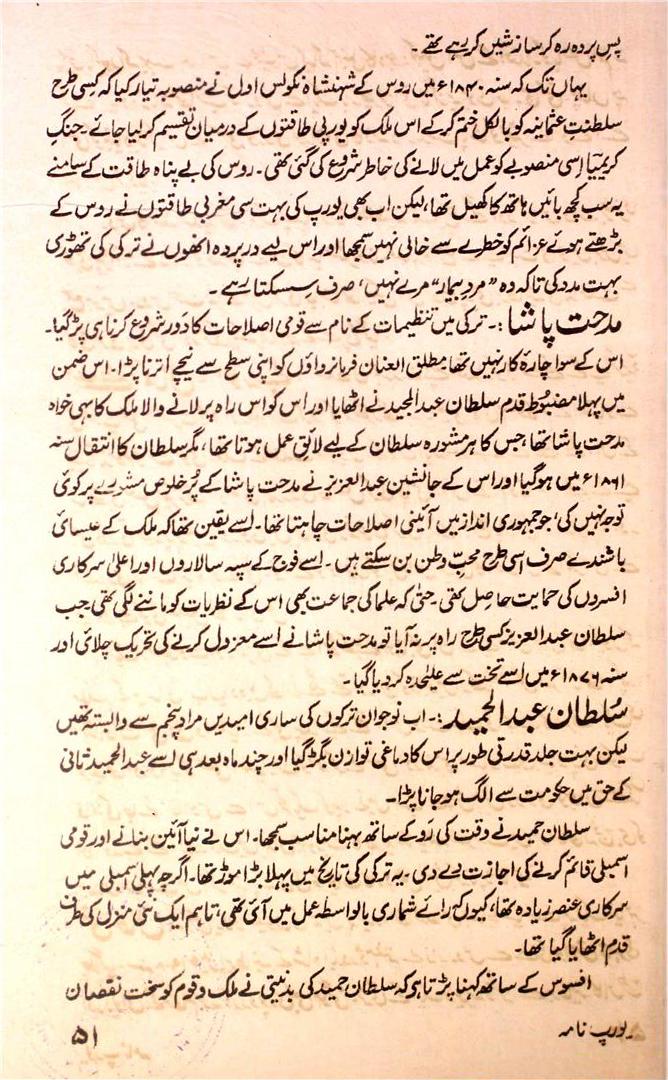 پسِ پردہ رہ کر سازشیں کر رہے تھے۔
یہاں تک کہ سنہ ۱۸۴۰ء میں روس کے شہنشاہ نکولس اول نے منصوبہ تیار کیا کہ کسی طرح
سلطنتِ عثمانیہ کو بالکل ختم کر کے اس ملک کو یورپی طاقتوں کے درمیان تقسیم کر لیا جائے۔ جنگِ
کریمیا اِسی منصوبے کو عمل میں لانے کی خاطر شروع کی گئی تھی۔ روس کی بے پناہ طاقت کے سامنے
یہ سب کچھ بائیں ہاتھ کا کھیل تھا، لیکن اب بھی یورپ کی بہت سی مغربی طاقتوں نے روس کے
بڑھتے ہوئے عزائم کو خطرے سے خالی نہیں سمجھا اور اس لیے درپردہ انھوں نے ترکی کی تھوڑی
بہت مدد کی تاکہ وہ "مردِ بیمار" مرے نہیں، صرف سِسکتا رہے۔
مدحت پاشا:۔ ترکی میں تنظیمات کے نام سے قومی اصلاحات کا دَور شروع کرنا ہی پڑ گیا۔
اس کے سوا چارۂ کار نہیں تھا۔ مطلق العنان فرمانرواؤں کو اپنی سطح سے نیچے اترنا پڑا۔ اس ضمن
میں پہلا مضبُوط قدم سلطان عبدالمجید نے اٹھایا اور اس کو اس راہ پر لانے والا ملک کا بہی خواہ
مدحت پاشا تھا، جس کا ہر مشورہ سلطان کے لیے لائقِ عمل ہوتا تھا، مگر سلطان کا انتقال سنہ
۱۸۶۱ء میں ہو گیا اور اس کے جانشین عبدالعزیز نے مدحت پاشا کے پُر خلوص مشورے پر کوئی
توجہ نہیں کی، جو جمہوری انداز میں آئینی اصلاحات چاہتا تھا۔ اُسے یقین تھا کہ ملک کے عیسائی
باشندے صرف اسی طرح محبِّ وطن بن سکتے ہیں۔ اُسے فوج کے سپہ سالاروں اور اعلیٰ سرکاری
افسروں کی حمایت حاصل تھی۔ حتیٰ کہ علما کی جماعت بھی اس کے نظریات کو ماننے لگی تھی، جب
سلطان عبدالعزیز کسی طرح راہ پر نہ آیا تو مدحت پاشا نے اسے معزول کرنے کی تحریک چلائی اور
سنہ ۱۸۷۶ء میں اُسے تخت سے علیٰحدہ کر دیا گیا۔
سُلطان عبدالحمید:۔ اب نوجوان ترکوں کی ساری امیدیں مراد پنجم سے وابستہ تھیں
لیکن بہت جلد قدرتی طور پر اس کا دماغی توازن بگڑ گیا اور چند ماہ بعد ہی اُسے عبدالحمید ثانی
کے حق میں حکومت سے الگ ہو جانا پڑا۔
سلطان حمید نے وقت کی رَو کے ساتھ بہنا مناسب سمجھا۔ اس نے نیا آئین بنانے اور قومی
اسمبلی قائم کرنے کی اجازت دے دی۔ یہ ترکی کی تاریخ میں پہلا بڑا موڑ تھا۔ اگرچہ پہلی اسمبلی میں
سرکاری عنصر زیادہ تھا، کیوں کہ رائے شماری بالواسطہ عمل میں آئی تھی، تاہم ایک نئی منزل کی طرف
قدم اٹھایا گیا تھا۔
افسوس کے ساتھ کہنا پڑتا ہو کہ سلطان حمید کی بدنیتی نے ملک و قوم کو سخت نقصان
یورپ نامہ
۵۱